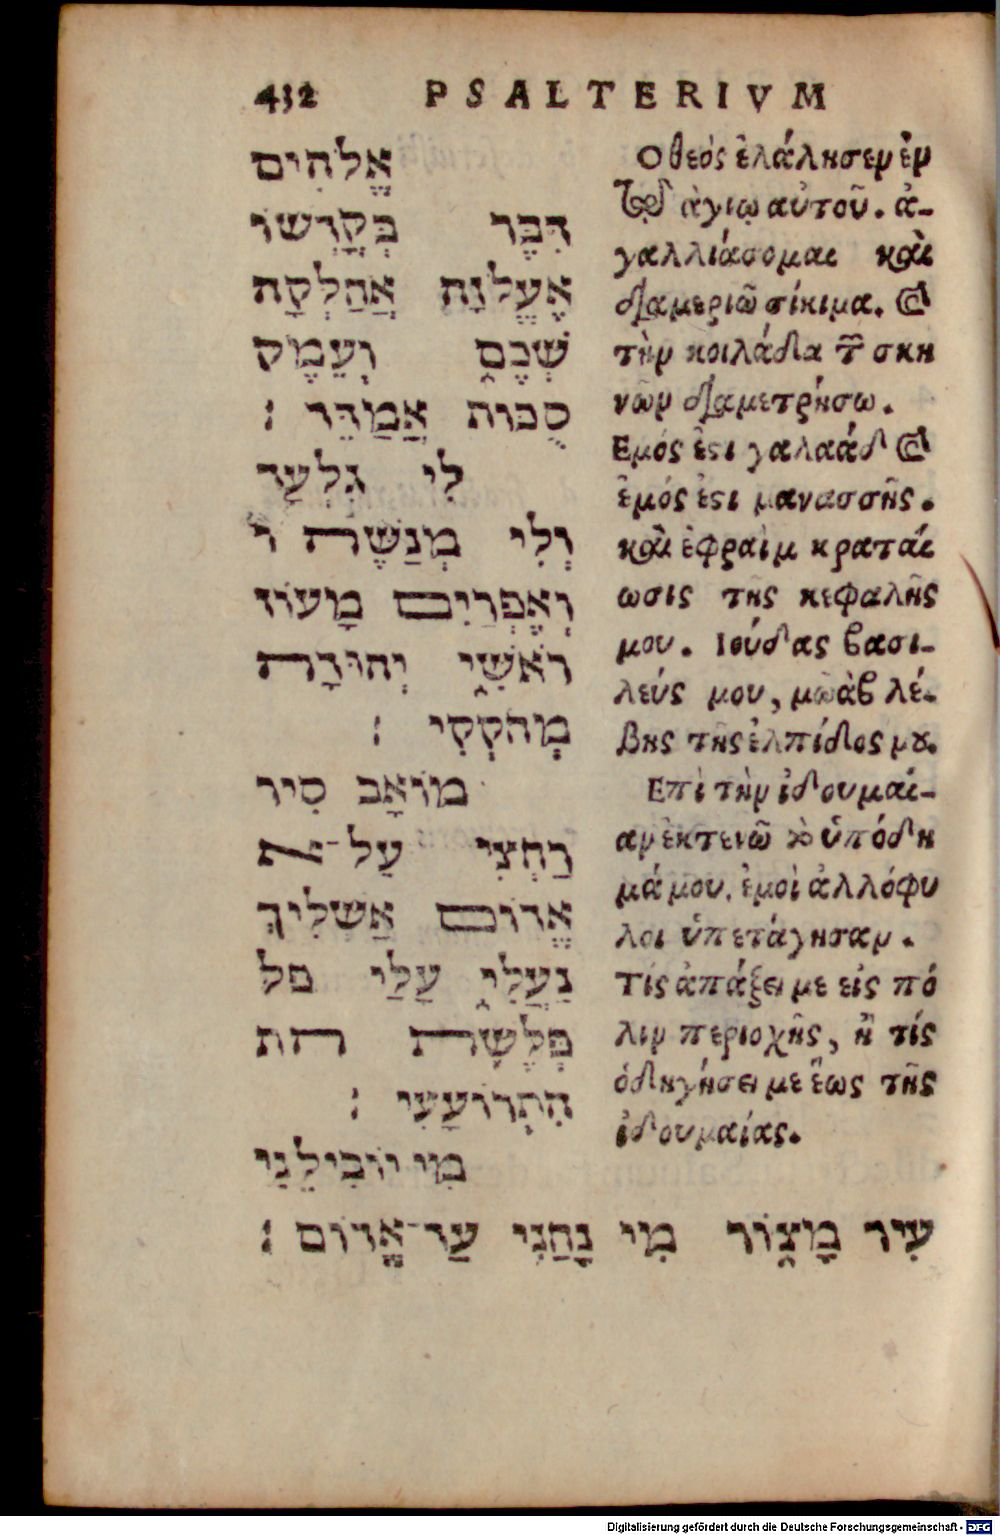 432 PSALTERIVM
אֱלֹהִים
דִּבֶּר בְּקָדְשׁוֹ
אֶעֱלֹזָה אֲחַלְּקָה
שְׁכֶם וְעֵמֶק
סֻכּוֹת אֲמַדֵּד :
לִי גִלְעָד
וְלִי מְנַשֶּׁה ו
וְאֶפְרַיִם מָעוֹז
רֹאשִׁי יְהוּדָה
מְחֹקְקִי :
מוֹאָב סִיר
רַחְצִי עַל־א
אֱדוֹם אַשְׁלִיךְ
נַעֲלִי עָלַי פל
פְּלֶשֶׁת הת
הִתְרוֹעָעִי :
מִי יוֹבִילֵנִי
עִיר מָצוֹר מִי נָחַנִי עַד־אֱדוֹם :
Ο θεός ἐλάλησεν ἐν
τῷ ἁγίῳ αὐτοῦ. ἀ-
γαλλιάσομαι καὶ
διαμεριῶ σίκιμα. καὶ
τὴν κοιλάδα τῶν σκη
νῶν διαμετρήσω.
Εμός ἐστι γαλαάδ καὶ
ἐμός ἐστι μανασσῆς.
καὶ ἐφραὶμ κραταί
ωσις τῆς κεφαλῆς
μου. Ιούδας βασι-
λεύς μου, μωὰβ λέ-
βης τῆς ἐλπίδος μου.
Επὶ τὴν ἰδουμαί-
αν ἐκτενῶ τὸ ὑπόδη
μά μου, ἐμοὶ ἀλλόφυ
λοι ὑπετάγησαν.
Τίς ἀπάξει με εἰς πό
λιν περιοχῆς, ἢ τίς
ὁδηγήσει με ἕως τῆς
ἰδουμαίας.
Digitalisierung gefördert durch die Deutsche Forschungsgemeinschaft - DFG